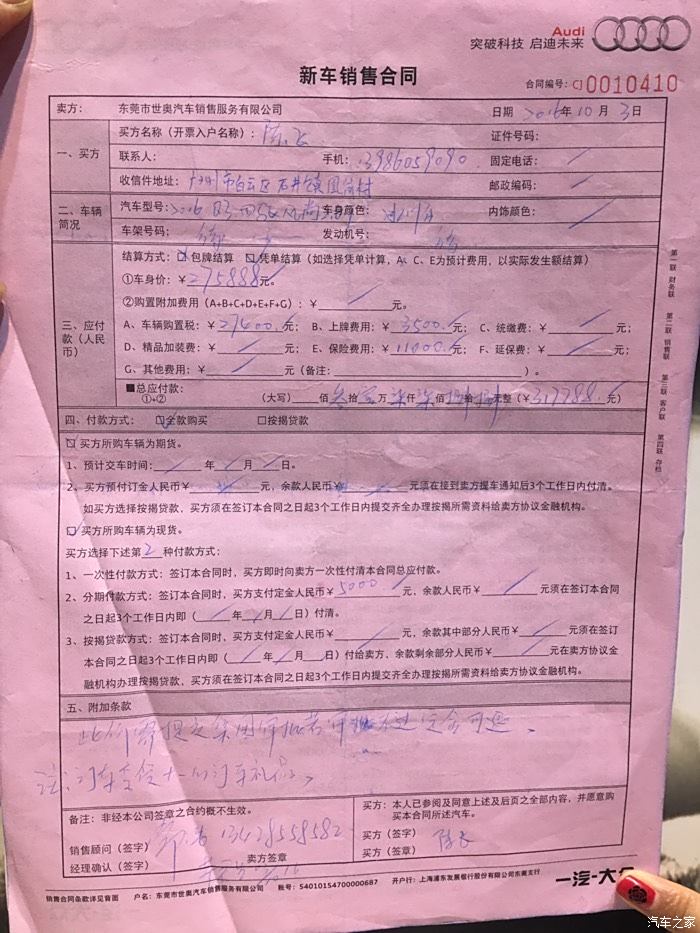 Audi
突破科技 启迪未来
新车销售合同
合同编号: CJ0010410
卖方: 东莞市世奥汽车销售服务有限公司 日期 2016年10月3日
一、买方
买方名称(开票入户名称): 证件号码:
联系人: 手机: 13986059090 固定电话:
收信件地址: 广州市白云区石井镇凤岗村 邮政编码:
二、车辆简况
汽车型号: 车身颜色: 内饰颜色:
车架号码: 发动机号:
三、应付款(人民币)
结算方式: 包牌结算 凭单结算(如选择凭单计算,A、C、E为预计费用,以实际发生额结算)
①车身价: ¥275888元。
②购置附加费用(A+B+C+D+E+F+G): ¥ 元。
A、车辆购置税: ¥27400元; B、上牌费用: ¥3500元; C、统缴费: ¥ 元;
D、精品加装费: ¥ 元; E、保险费用: ¥11000元; F、延保费: ¥ 元;
G、其他费用: ¥ 元(备注: )。
■总应付款: ①+② (大写) 佰叁拾壹万柒仟柒佰捌拾捌元整(¥317788元)
四、付款方式: 全款购买 □按揭贷款
买方所购车辆为期货。
1、预计交车时间: 年 月 日。
2、买方预付订金人民币¥ 元,余款人民币¥ 元须在接到卖方提车通知后3个工作日内付清。
如买方选择按揭贷款,买方须在签订本合同之日起3个工作日内提交齐全办理按揭所需资料给卖方协议金融机构。
买方所购车辆为现货。
买方选择下述第2种付款方式:
1、一次性付款方式: 签订本合同时,买方即时向卖方一次性付清本合同总应付款。
2、分期付款方式: 签订本合同时,买方支付定金人民币¥5000元,余款人民币¥ 元须在签订本合同
之日起3个工作日内即( 年 月 日)付清。
3、按揭贷款方式: 签订本合同时,买方支付定金人民币¥ 元,余款其中部分人民币¥ 元须在签订
本合同之日起3个工作日内即( 年 月 日)付给卖方、余款剩余部分人民币¥ 元在卖方协议金
融机构办理按揭贷款,买方须在签订本合同之日起3个工作日内提交齐全办理按揭所需资料给卖方协议金融机构。
五、附加条款
此价需提交集团审批若审批不过定金可退。
注:订车
备注: 非经本公司签章之合约概不生效。
销售顾问(签字) 13428558582
经理确认(签字) 卖方签章
买方: 本人已参阅及同意上述及后页之全部内容,并愿意购
买本合同所述汽车。
买方(签字)
买方(签章)
第一联 财务联
第二联 销售联
第三联 客户联
第四联 存档
销售合同条款详见背面 户名: 东莞市世奥汽车销售服务有限公司 账号: 54010154700000687 开户行: 上海浦东发展银行股份有限公司东莞支行
一汽-大众
汽车之家